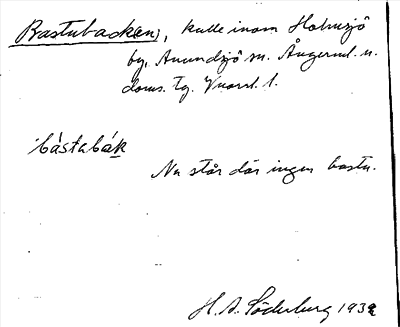 Bastubacken, kulle inom Holmsjö
by, Anundsjö sn. Ångerml. n.
doms. tg. Vuorel. 1.
bástabák
Nu står där ingen bastu.
H. A. Söderberg 1932